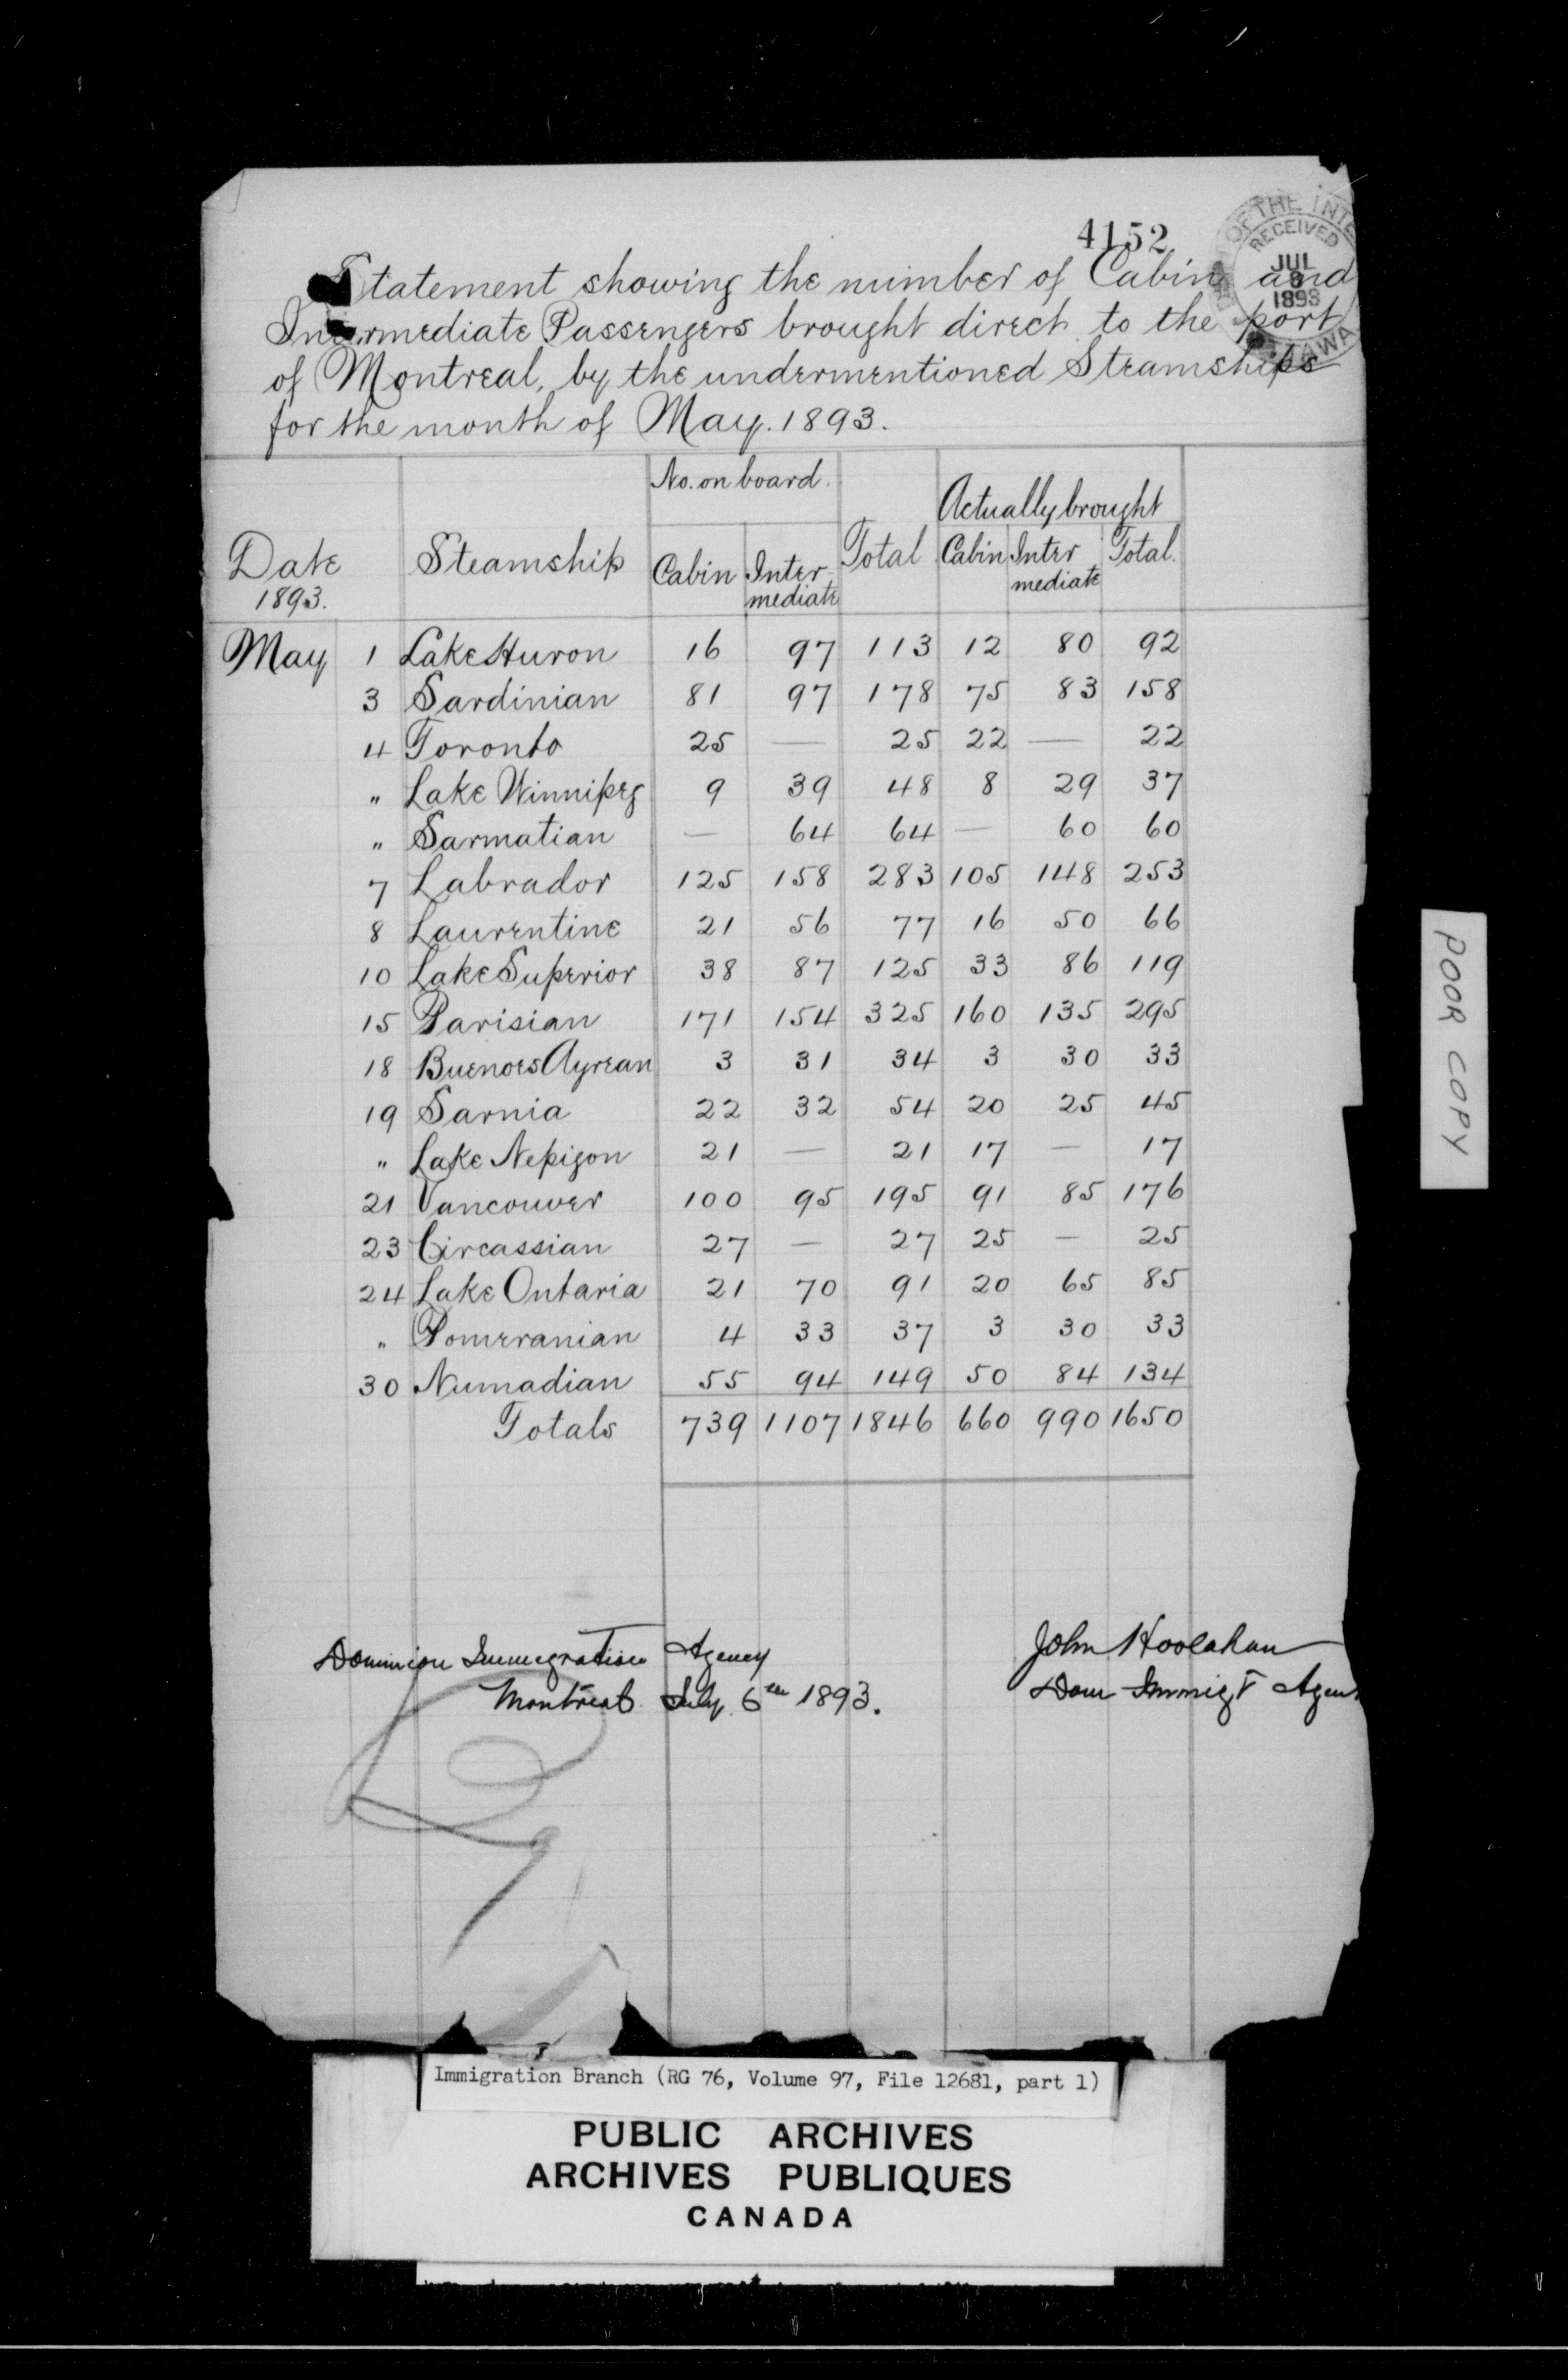 4152
OF THE INTE
RECEIVED
JUL
8
1893
Statement showing the number of Cabin and
Intermediate Passengers brought direct to the port
of Montreal, by the undermentioned Steamships
for the month of May. 1893.
Date 1893. Steamship No. on board. Cabin Inter-mediate Total Actually brought Cabin Inter mediate Total.
May 1 Lake Huron 16 97 113 12 80 92
3 Sardinian 81 97 178 75 83 158
4 Toronto 25 — 25 22 — 22
" Lake Winnipeg 9 39 48 8 29 37
" Sarmatian — 64 64 — 60 60
7 Labrador 125 158 283 105 148 253
8 Laurentine 21 56 77 16 50 66
10 Lake Superior 38 87 125 33 86 119
15 Parisian 171 154 325 160 135 295
18 Buenos Ayrean 3 31 34 3 30 33
19 Sarnia 22 32 54 20 25 45
" Lake Nepigon 21 — 21 17 — 17
21 Vancouver 100 95 195 91 85 176
23 Circassian 27 — 27 25 — 25
24 Lake Ontaria 21 70 91 20 65 85
" Pomeranian 4 33 37 3 30 33
30 Numadian 55 94 149 50 84 134
Totals 739 1107 1846 660 990 1650
Dominion Immigration Agency
Montreal July 6th 1893.
John Hoolahan
Dom Immigt Agent
POOR COPY
Immigration Branch (RG 76, Volume 97, File 12681, part 1)
PUBLIC ARCHIVES
ARCHIVES PUBLIQUES
CANADA